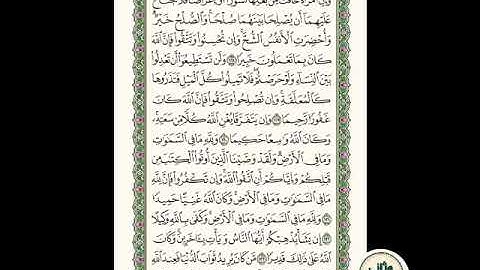 وَإِنِ ٱمْرَأَةٌ خَافَتْ مِنۢ بَعْلِهَا نُشُوزًا أَوْ إِعْرَاضًا فَلَا جُنَاحَ
عَلَيْهِمَآ أَن يُصْلِحَا بَيْنَهُمَا صُلْحًا ۚ وَٱلصُّلْحُ خَيْرٌ ۗ
وَأُحْضِرَتِ ٱلْأَنفُسُ ٱلشُّحَّ ۚ وَإِن تُحْسِنُوا۟ وَتَتَّقُوا۟ فَإِنَّ ٱللَّهَ
كَانَ بِمَا تَعْمَلُونَ خَبِيرًا ١٢٨ وَلَن تَسْتَطِيعُوٓا۟ أَن تَعْدِلُوا۟
بَيْنَ ٱلنِّسَآءِ وَلَوْ حَرَصْتُمْ ۖ فَلَا تَمِيلُوا۟ كُلَّ ٱلْمَيْلِ فَتَذَرُوهَا
كَٱلْمُعَلَّقَةِ ۚ وَإِن تُصْلِحُوا۟ وَتَتَّقُوا۟ فَإِنَّ ٱللَّهَ كَانَ
غَفُورًا رَّحِيمًا ١٢٩ وَإِن يَتَفَرَّقَا يُغْنِ ٱللَّهُ كُلًّا مِّن سَعَتِهِۦ ۚ
وَكَانَ ٱللَّهُ وَٰسِعًا حَكِيمًا ١٣٠ وَلِلَّهِ مَا فِى ٱلسَّمَٰوَٰتِ
وَمَا فِى ٱلْأَرْضِ ۗ وَلَقَدْ وَصَّيْنَا ٱلَّذِينَ أُوتُوا۟ ٱلْكِتَٰبَ مِن
قَبْلِكُمْ وَإِيَّاكُمْ أَنِ ٱتَّقُوا۟ ٱللَّهَ ۚ وَإِن تَكْفُرُوا۟ فَإِنَّ لِلَّهِ
مَا فِى ٱلسَّمَٰوَٰتِ وَمَا فِى ٱلْأَرْضِ ۚ وَكَانَ ٱللَّهُ غَنِيًّا حَمِيدًا
١٣١ وَلِلَّهِ مَا فِى ٱلسَّمَٰوَٰتِ وَمَا فِى ٱلْأَرْضِ ۚ وَكَفَىٰ بِٱللَّهِ وَكِيلًا
١٣٢ إِن يَشَأْ يُذْهِبْكُمْ أَيُّهَا ٱلنَّاسُ وَيَأْتِ بِـَٔاخَرِينَ ۚ وَكَانَ
ٱللَّهُ عَلَىٰ ذَٰلِكَ قَدِيرًا ١٣٣ مَّن كَانَ يُرِيدُ ثَوَابَ ٱلدُّنْيَا فَعِندَ ٱللَّهِ